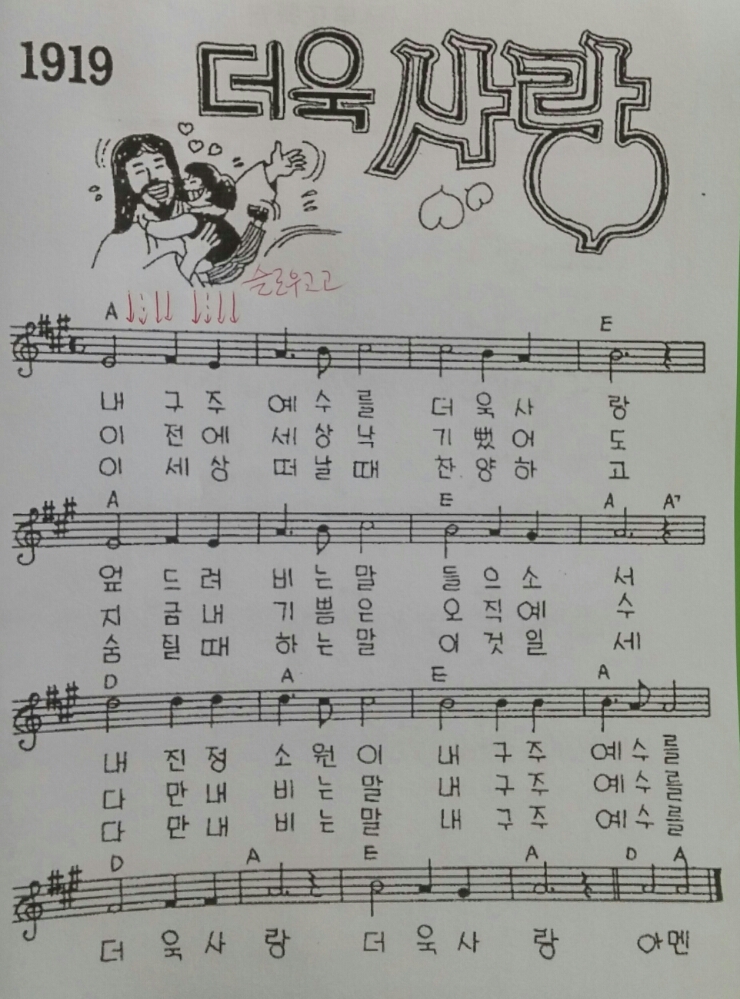 1919 더욱 사랑
슬로우고고
A E
내 구 주 예 수 를 더 욱 사 랑
이 전 에 세 상 낙 기 뻤 어 도
이 세 상 떠 날 때 찬 양 하 고
A E A A7
엎 드 려 비 는 말 들 으 소 서
지 금 내 기 쁨 은 오 직 예 수
숨 질 때 하 는 말 이 것 일 세
D A E A
내 진 정 소 원 이 내 구 주 예 수 를
다 만 내 비 는 말 내 구 주 예 수 를
다 만 내 비 는 말 내 구 주 예 수 를
D A E A D A
더 욱 사 랑 더 욱 사 랑 아 멘